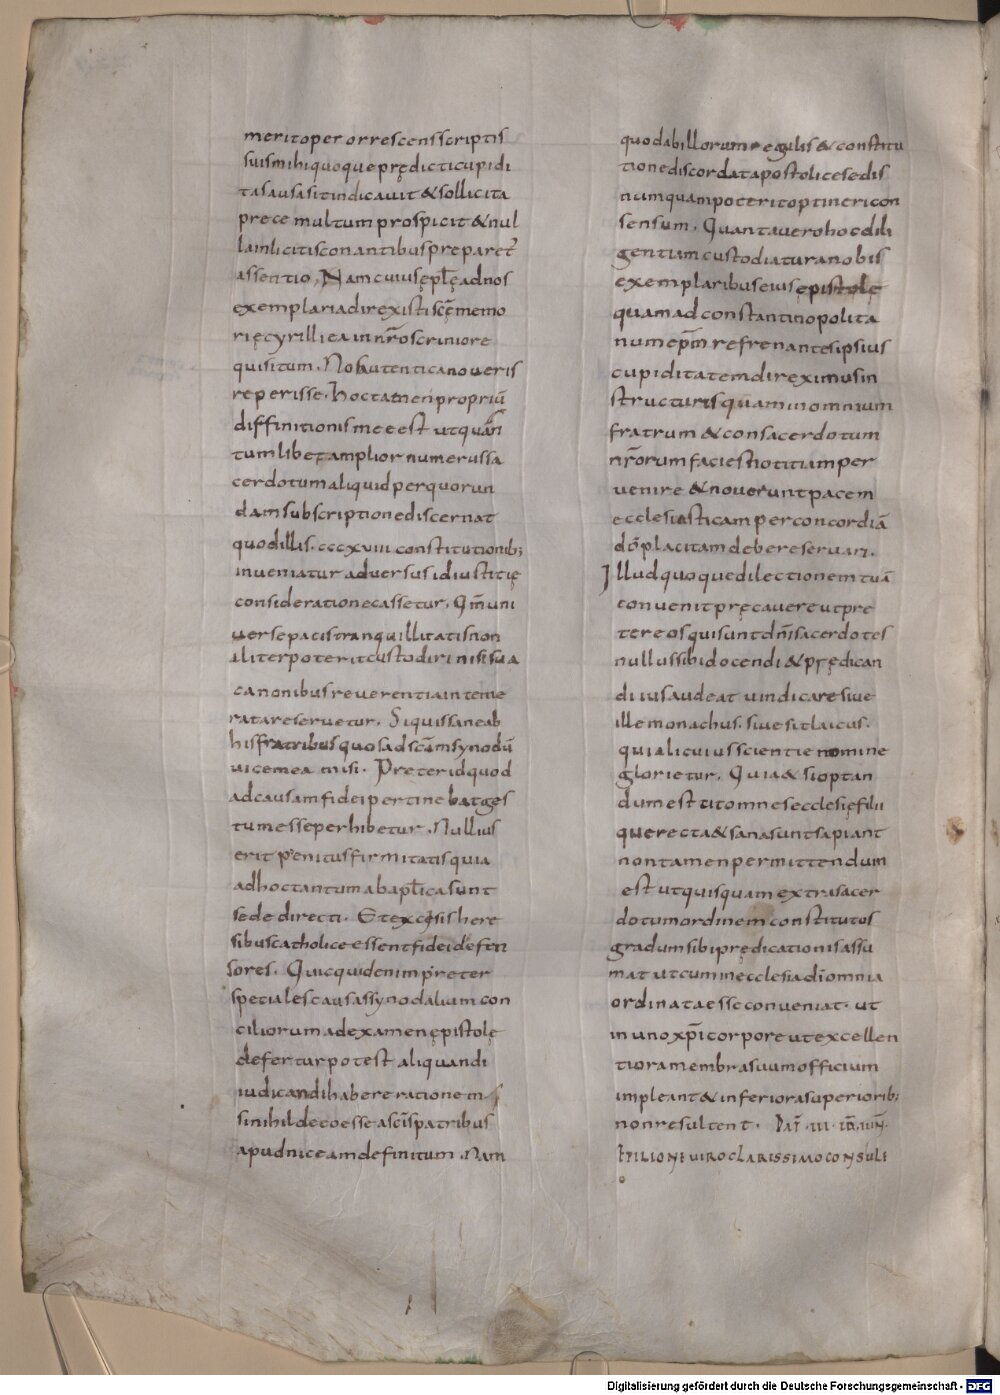 merito per orrescens scriptis
suis mihi quoque prędicti cupidi
tas ausa sit indicavit & sollicita
prece multum prospicit & nul
la inlicitis conantibus preparet̃
assentio, Nam cuius ępl̃e ad nos
exemplaria direxisti sc̃ę memo
rię cyrilli ea in nr̃o scrinio re
quisitum. Nos autentica noveris
reperisse. hoc tamen propriũ
diffinitionis mee est ut quan
tumlibet amplior numerus sa
cerdotum aliquid per quorun
dam subscriptione discernat
quod illis. cccxviii constitutionib;
inveniatur adversus id iustitię
consideratione cassetur. Qm̃ uni
verse pacis tranquillitatis non
aliter poterit custodiri nisi sua
canonibus reverentia inteme
rata reservetur. Si quis sane ab
his fratribus quos ad sc̃am synodũ
vice mea misi. Preter id quod
ad causam fidei pertinebat ges
tum esse perhibetur. Nullius
erit penitus firmitatis quia
ad hoc tantum ab apl̃ica sunt
sede directi. Et excęsis here
sibus catholice essent fidei defen
sores. Quicquid enim preter
speciales causas synodalium con
ciliorum ad examen ępistolę
defertur potest aliquandi
iudicandi habere rationem
si nihil de eo esse a sc̃is patribus
apud niceam definitum. Nam
quod ab illorum regulis & constitu
tione discordat apostolice sedis
numquam poterit optineri con
sensum. Quanta vero hoc dili
gentiam custodiatur a nobis
exemplaribus eius epistole
quam ad constantinopolita
num ep̃m refrenantes ipsius
cupiditatem direximus in
structuris quam in omnium
fratrum & consacerdotum
nr̃orum facies notitiam per
venire & noverunt pacem
ecclesiasticam per concordiã
dõ placitam debere servari.
Illud quoque dilectionem tuã
convenit pręcavere ut pre
ter eos qui sunt dn̄i sacerdotes
nullus sibi docendi & prędican
di ius audeat vindicare sive
ille monachus. sive sit laicus.
qui alicuius scientie nomine
glorietur. Quia & si optan
dum est tit omnes ecclesię filii
que recta & sana sunt sapiant
non tamen permittendum
est ut quisquam extra sacer
dotum ordinem constitutos
gradum sibi prędicationis assu
mat ut cum in ecclesia dĩ omnia
ordinata esse conveniat. ut
in uno xp̃i corpore ut excellen
tiora membra suum officium
impleant & inferiora superiorib;
non resultent. Dat̃. iii.
FILIONE VIRO CLARISSIMO CONSULE
Digitalisierung gefördert durch die Deutsche Forschungsgemeinschaft - DFG